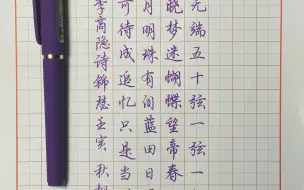 无端五十弦一弦一
晓梦迷蝴蝶望帝春
月明珠有泪蓝田日
可待成追忆只是当
李商隐诗锦瑟壬寅秋